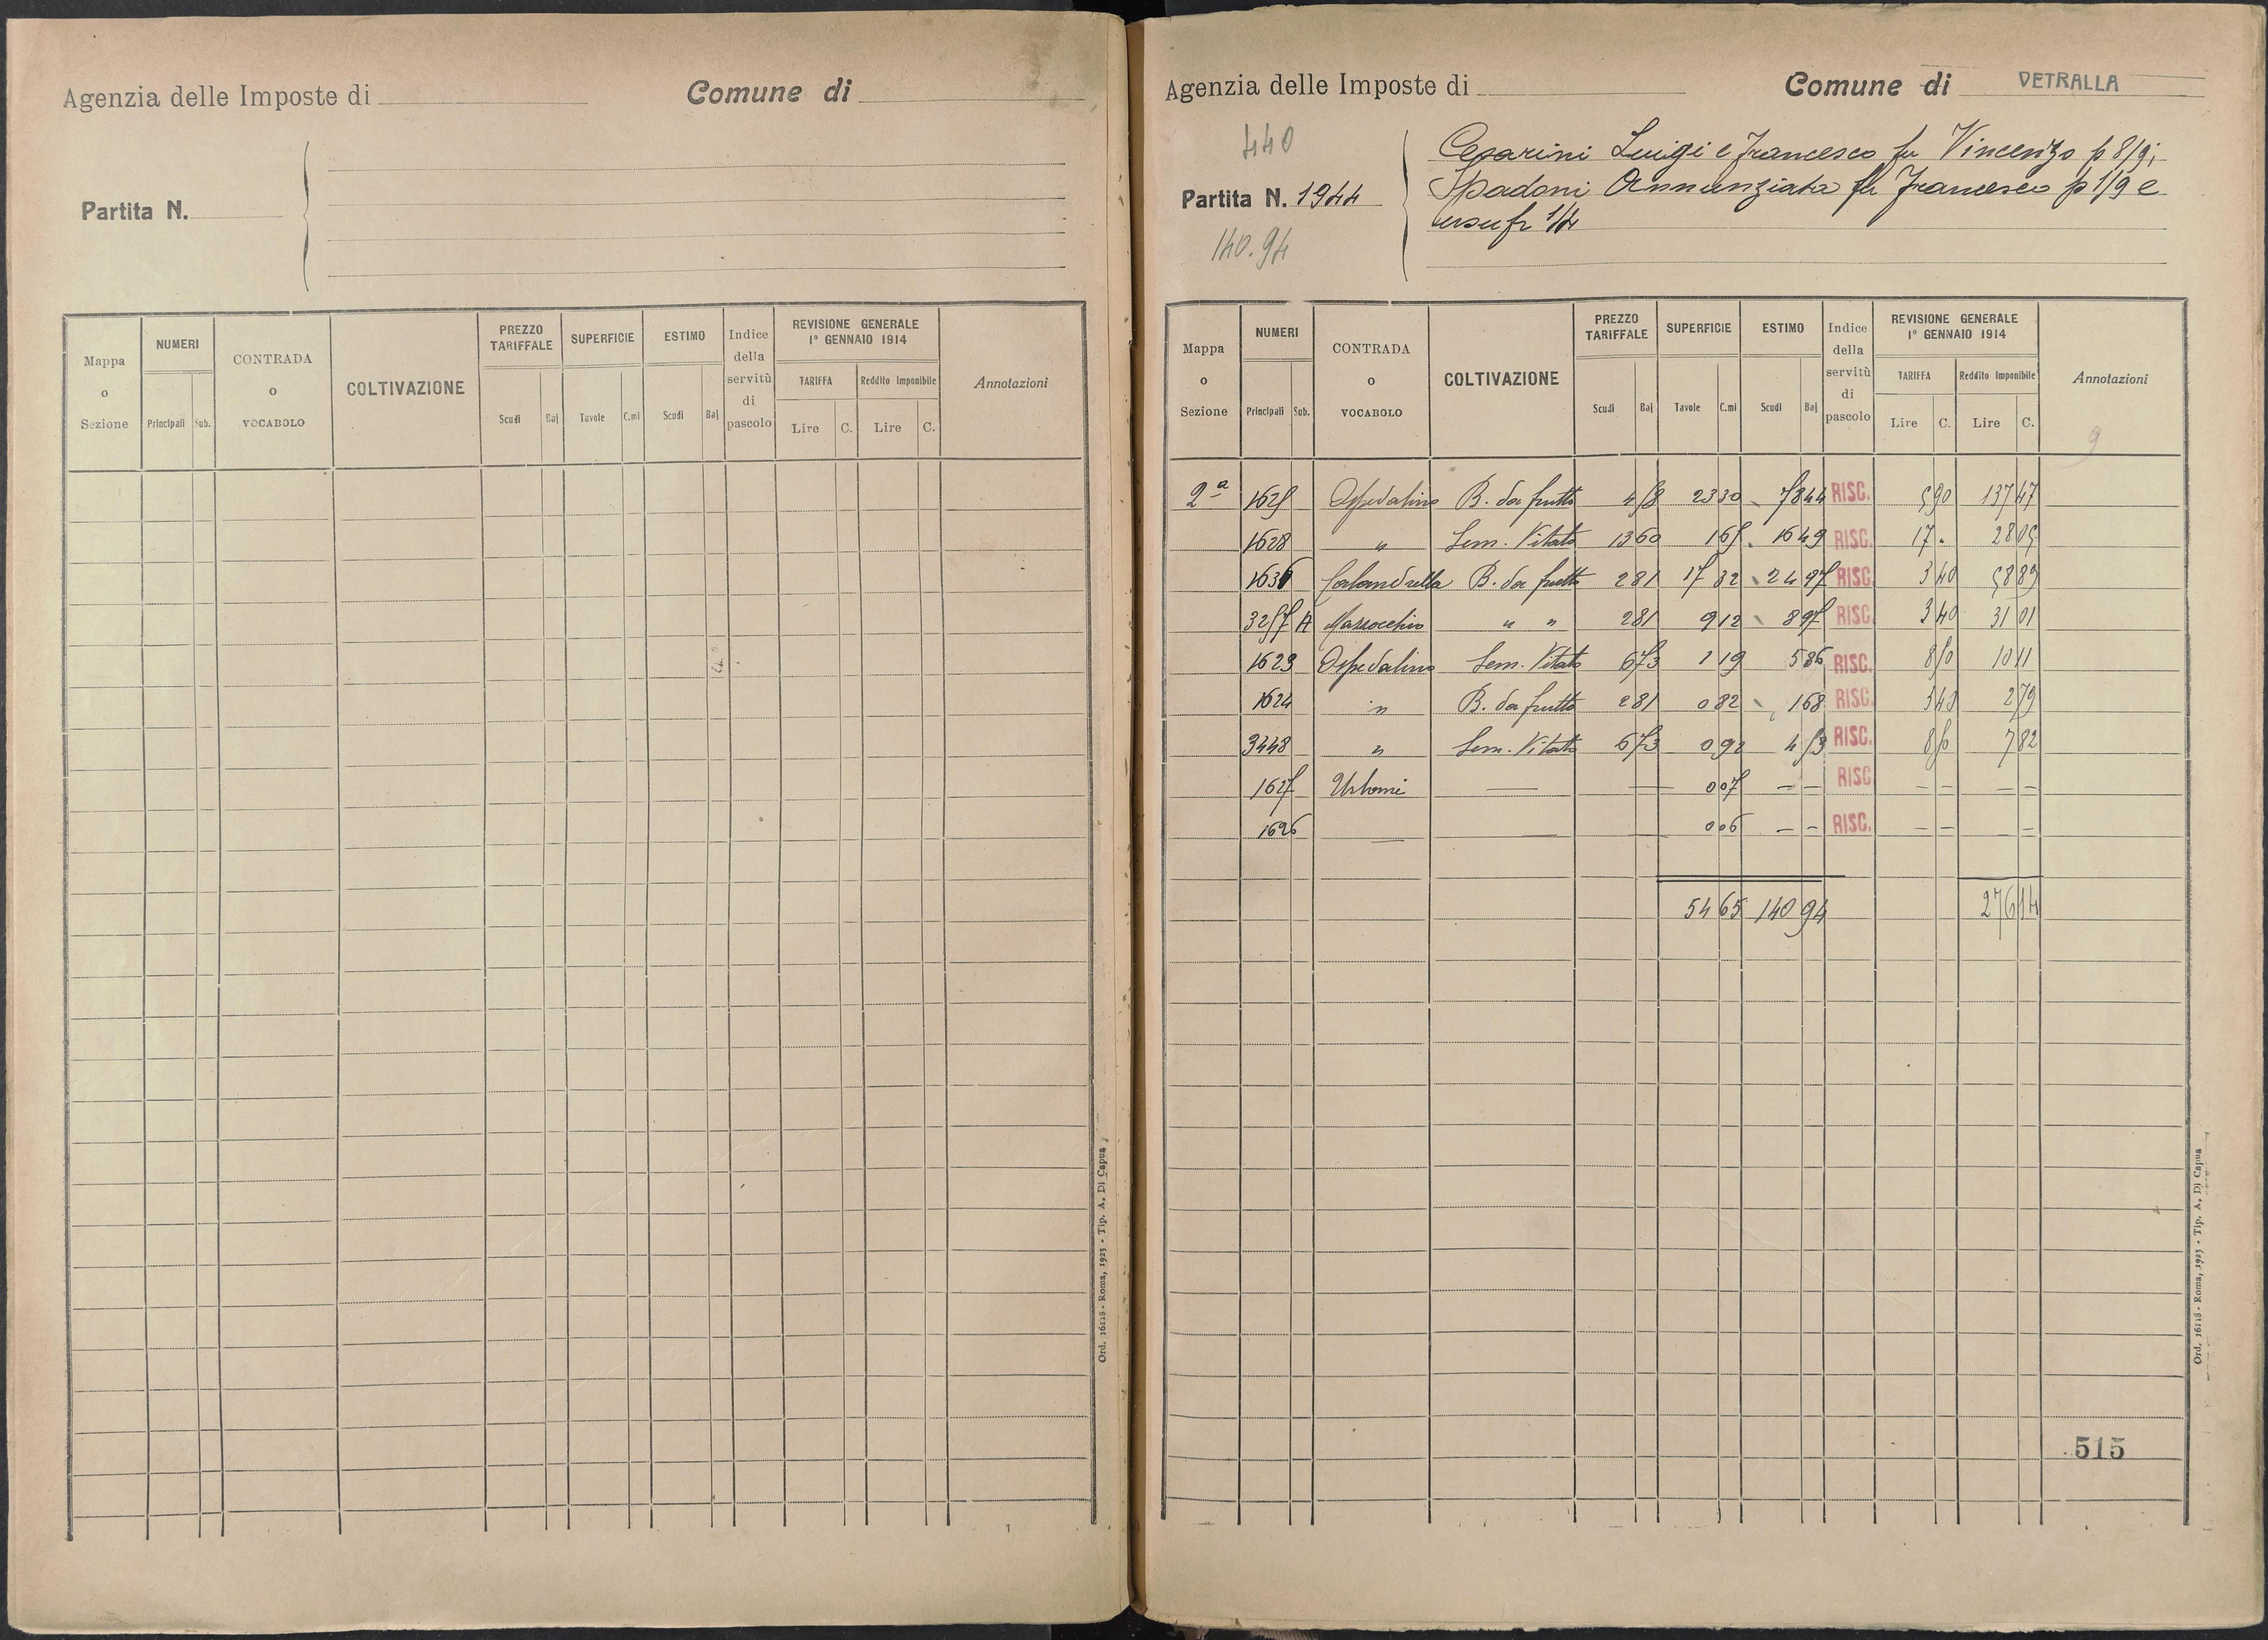 Agenzia delle Imposte di
Comune di
Partita N.
Mappa o Sezione
NUMERI
Principali Sub.
CONTRADA o VOCABOLO
COLTIVAZIONE
PREZZO TARIFFALE
Scudi Baj
SUPERFICIE
Tavole C.mi
ESTIMO
Scudi Baj
Indice della servitù di pascolo
REVISIONE GENERALE
1° GENNAIO 1914
TARIFFA
Lire C.
Reddito Imponibile
Lire C.
Annotazioni
Ord. 16118 - Roma, 1923 - Tip. A. Di Capua
Agenzia delle Imposte di
Comune di VETRALLA
440
Partita N. 1944
140.94
Cesarini Luigi e Francesco fu Vincenzo p 8/9;
Spadoni Annunziata fu Francesco p 1/9 e
usufr 1/4
Mappa o Sezione
NUMERI
Principali Sub.
CONTRADA o VOCABOLO
COLTIVAZIONE
PREZZO TARIFFALE
Scudi Baj
SUPERFICIE
Tavole C.mi
ESTIMO
Scudi Baj
Indice della servitù di pascolo
REVISIONE GENERALE
1° GENNAIO 1914
TARIFFA
Lire C.
Reddito Imponibile
Lire C.
Annotazioni
9
2ª 1625 Ospedalino B. da frutto 4 58 23 30 78 44 RISC. 5 90 137 47
1628 " Sem. Vitato 13 60 1 65 16 49 RISC. 17 . 28 05
1636 Calandrella B. da frutto 2 81 17 32 24 97 RISC. 3 40 58 89
3257 A Marrocchio " " 2 81 9 12 8 97 RISC. 3 40 31 01
1623 Ospedalino Sem. Vitato 6 73 1 19 5 86 RISC. 8 50 10 11
1624 " B. da frutto 2 81 0 82 1 68 RISC. 3 40 2 79
3448 " Sem. Vitato 6 73 0 92 4 53 RISC. 8 50 7 82
1627 Urbani — — 0 07 — — RISC. — — — —
1626 — — 0 06 — — RISC. — — —
54 65 140 94 276 14
515
Ord. 16118 - Roma, 1923 - Tip. A. Di Capua